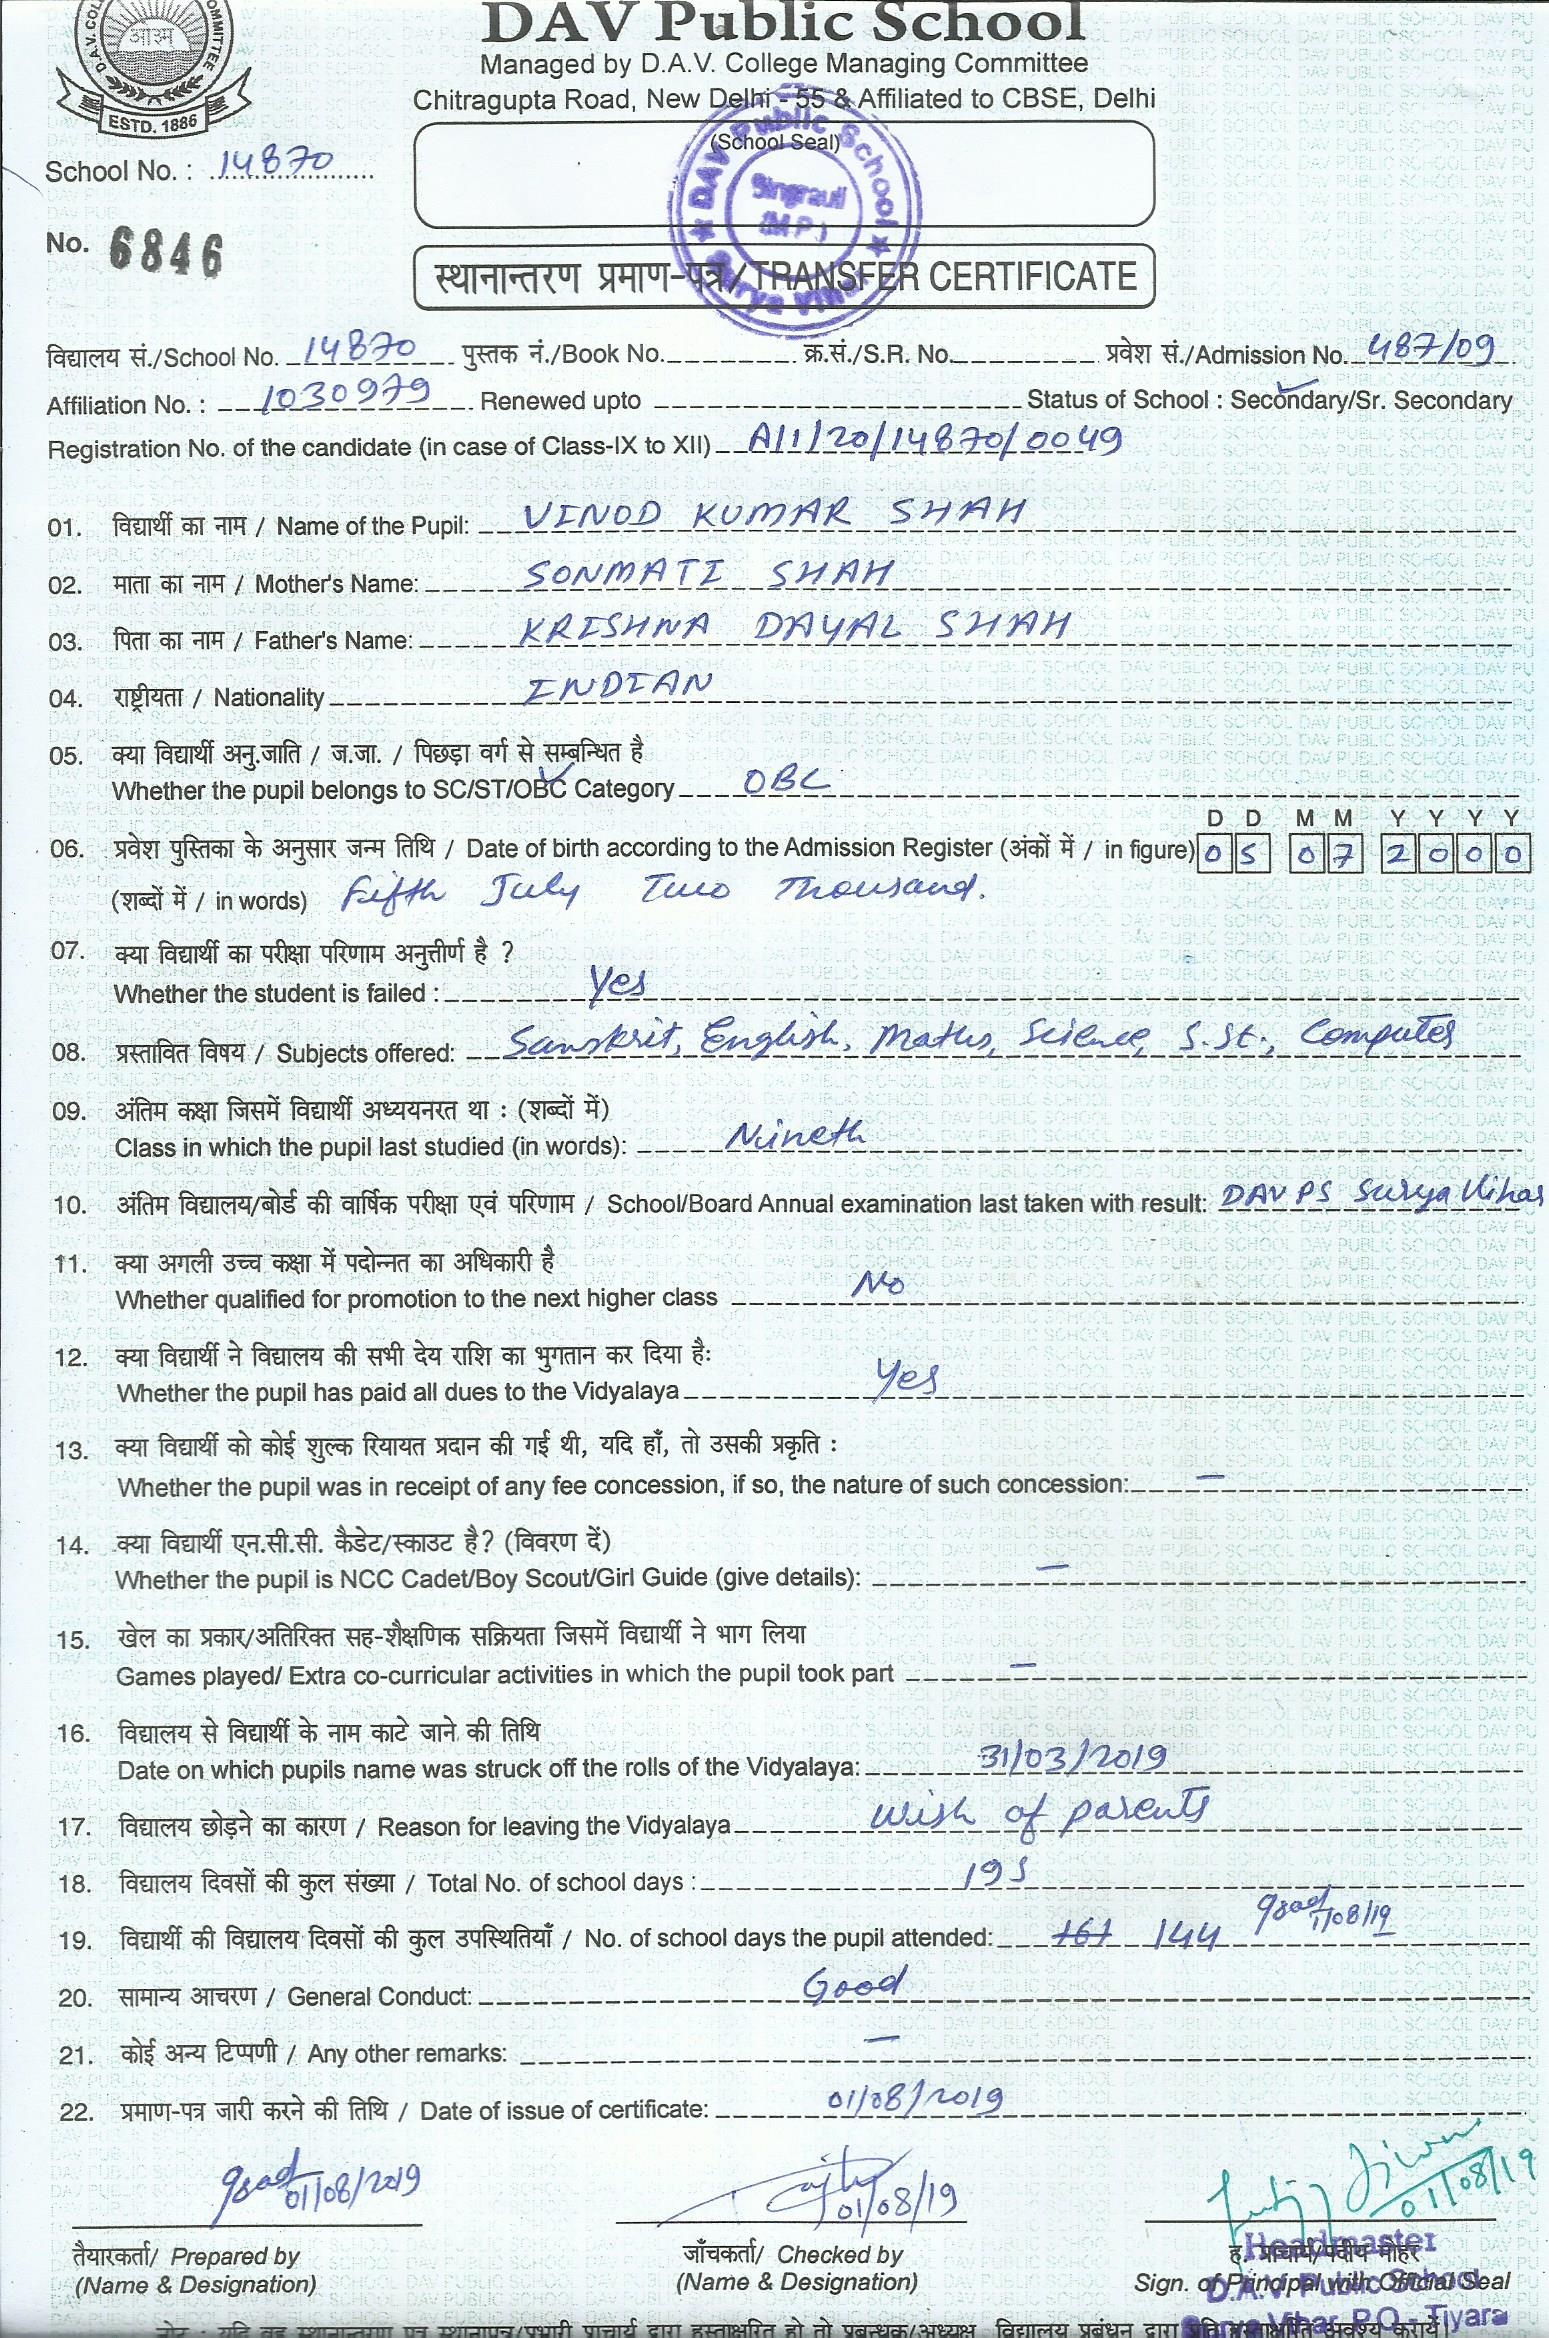 D.A.V. COL OMMITTEE
आ३म्
ESTD. 1886
DAV Public School
Managed by D.A.V. College Managing Committee
Chitragupta Road, New Delhi - 55 & Affiliated to CBSE, Delhi
(School Seal)
DAV Public School Surya Vihar
Singrauli
(M.P.)
School No. : 14870
No. 6846
स्थानान्तरण प्रमाण-पत्र/TRANSFER CERTIFICATE
विद्यालय सं./School No. 14870 पुस्तक नं./Book No. क्र.सं./S.R. No. प्रवेश सं./Admission No. 487/09
Affiliation No. : 1030979 Renewed upto Status of School : Secondary/Sr. Secondary
Registration No. of the candidate (in case of Class-IX to XII) A/1/20/14870/0049
01. विद्यार्थी का नाम / Name of the Pupil: VINOD KUMAR SHAH
02. माता का नाम / Mother's Name: SONMATI SHAH
03. पिता का नाम / Father's Name: KRISHNA DAYAL SHAH
04. राष्ट्रीयता / Nationality INDIAN
05. क्या विद्यार्थी अनु.जाति / ज.जा. / पिछड़ा वर्ग से सम्बन्धित है
Whether the pupil belongs to SC/ST/OBC Category OBC
D D M M Y Y Y Y
06. प्रवेश पुस्तिका के अनुसार जन्म तिथि / Date of birth according to the Admission Register (अंकों में / in figure) 0 5 0 7 2 0 0 0
(शब्दों में / in words) Fifth July Two Thousand.
07. क्या विद्यार्थी का परीक्षा परिणाम अनुत्तीर्ण है ?
Whether the student is failed : Yes
08. प्रस्तावित विषय / Subjects offered: Sanskrit, English, Maths, Science, S.St., Computer
09. अंतिम कक्षा जिसमें विद्यार्थी अध्ययनरत था : (शब्दों में)
Class in which the pupil last studied (in words): Nineth
10. अंतिम विद्यालय/बोर्ड की वार्षिक परीक्षा एवं परिणाम / School/Board Annual examination last taken with result: DAV PS Surya Vihar
11. क्या अगली उच्च कक्षा में पदोन्नत का अधिकारी है
Whether qualified for promotion to the next higher class No
12. क्या विद्यार्थी ने विद्यालय की सभी देय राशि का भुगतान कर दिया है:
Whether the pupil has paid all dues to the Vidyalaya Yes
13. क्या विद्यार्थी को कोई शुल्क रियायत प्रदान की गई थी, यदि हाँ, तो उसकी प्रकृति :
Whether the pupil was in receipt of any fee concession, if so, the nature of such concession: —
14. क्या विद्यार्थी एन.सी.सी. कैडेट/स्काउट है? (विवरण दें)
Whether the pupil is NCC Cadet/Boy Scout/Girl Guide (give details): —
15. खेल का प्रकार/अतिरिक्त सह-शैक्षणिक सक्रियता जिसमें विद्यार्थी ने भाग लिया
Games played/ Extra co-curricular activities in which the pupil took part —
16. विद्यालय से विद्यार्थी के नाम काटे जाने की तिथि
Date on which pupils name was struck off the rolls of the Vidyalaya: 31/03/2019
17. विद्यालय छोड़ने का कारण / Reason for leaving the Vidyalaya Wish of parents
18. विद्यालय दिवसों की कुल संख्या / Total No. of school days : 195
19. विद्यार्थी की विद्यालय दिवसों की कुल उपस्थितियाँ / No. of school days the pupil attended: 161 144 1/08/19
20. सामान्य आचरण / General Conduct: Good
21. कोई अन्य टिप्पणी / Any other remarks: —
22. प्रमाण-पत्र जारी करने की तिथि / Date of issue of certificate: 01/08/2019
01/08/2019 01/08/19 01/08/19
तैयारकर्ता/ Prepared by जाँचकर्ता/ Checked by ह. प्राचार्य/पदीय मोहर
(Name & Designation) (Name & Designation) Sign. of Principal with Official Seal
Headmaster
D.A.V. Public School
Surya Vihar, P.O.- Tiyara
नोट : यदि यह स्थानान्तरण पत्र स्थानापन्न/प्रभारी प्राचार्य द्वारा हस्ताक्षरित हो तो प्रबन्धक/अध्यक्ष, विद्यालय प्रबंधन द्वारा प्रति हस्ताक्षरित अवश्य करायें।